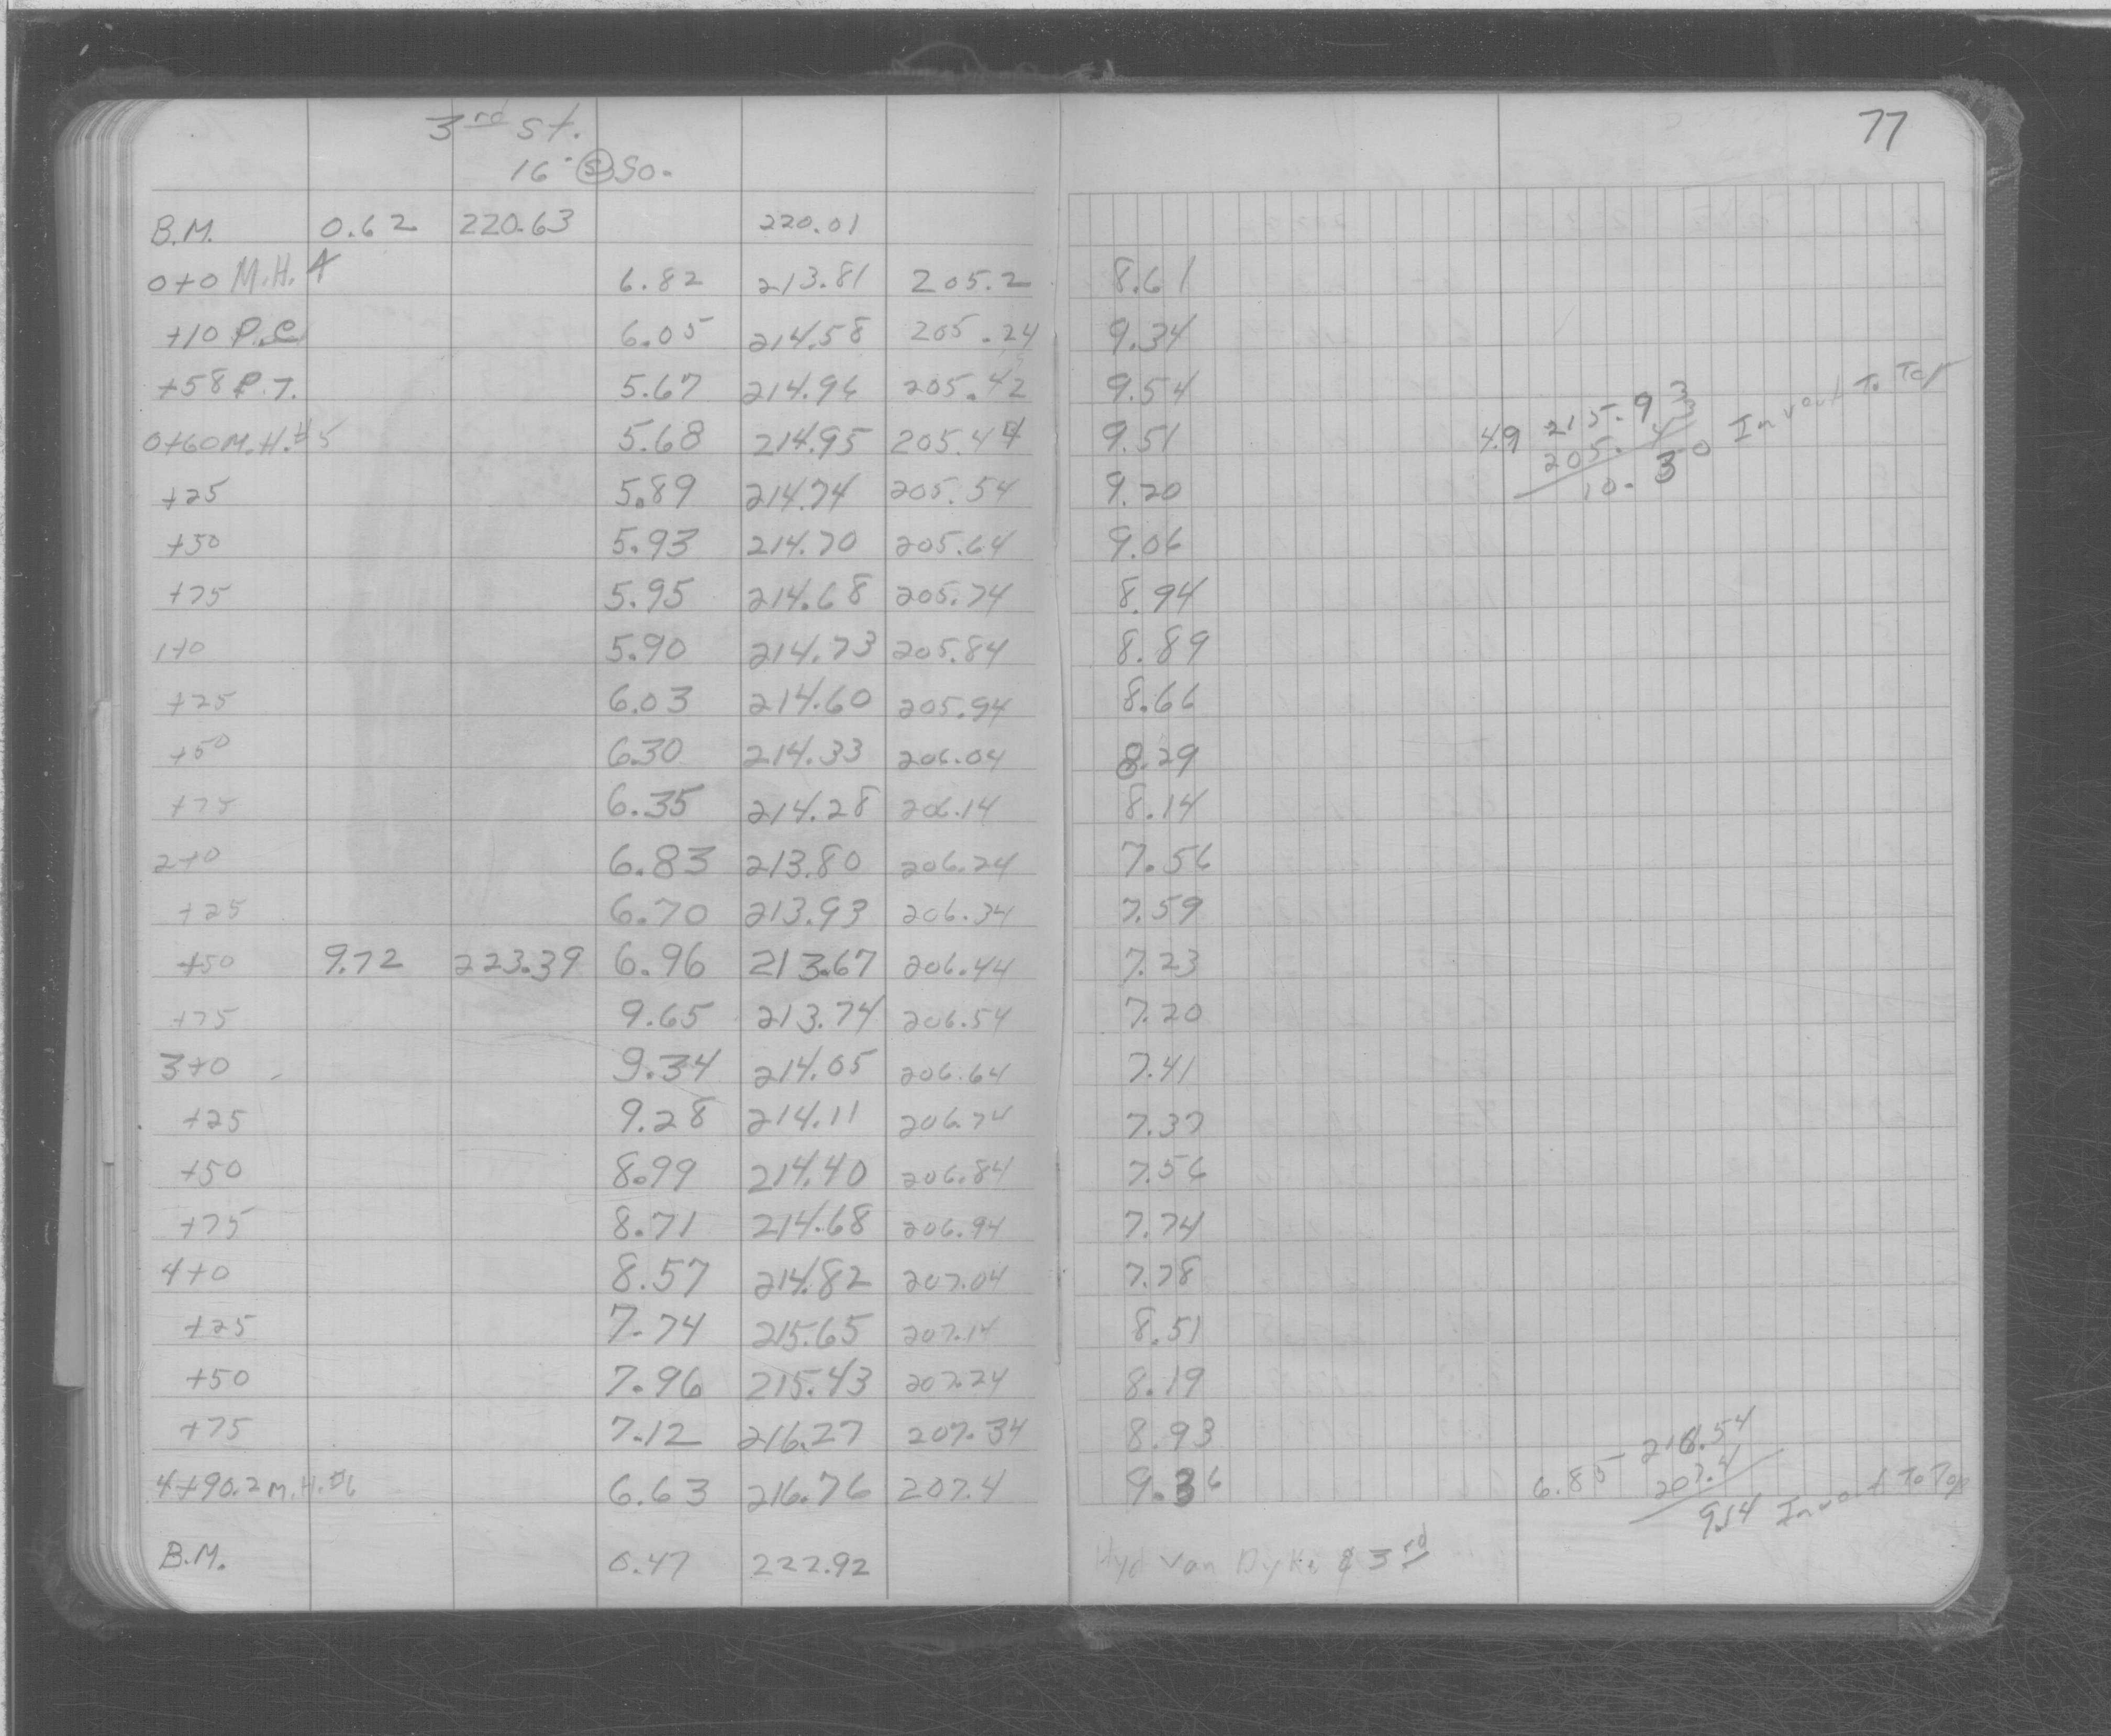 77
3rd St.
16" Ⓢ So.
B.M. 0.62 220.63 220.01
0+0 M.H. 4 6.82 213.81 205.2 8.61
+10 P.C. 6.05 214.58 205.24 9.34
+58 P.T. 5.67 214.96 205.42 9.54
0+60 M.H.#5 5.68 214.95 205.44 9.51
4.9 215.93
205.
10. 0 Invert To Top
+25 5.89 214.74 205.54 9.20
+50 5.93 214.70 205.64 9.06
+75 5.95 214.68 205.74 8.94
1+0 5.90 214.73 205.84 8.89
+25 6.03 214.60 205.94 8.66
+50 6.30 214.33 206.04 8.29
+75 6.35 214.28 206.14 8.14
2+0 6.83 213.80 206.24 7.56
+25 6.70 213.93 206.34 7.59
+50 9.72 223.39 6.96 213.67 206.44 7.23
+75 9.65 213.74 206.54 7.20
3+0 9.34 214.05 206.64 7.41
+25 9.28 214.11 206.74 7.37
+50 8.99 214.40 206.84 7.56
+75 8.71 214.68 206.94 7.74
4+0 8.57 214.82 207.04 7.78
+25 7.74 215.65 207.14 8.51
+50 7.96 215.43 207.24 8.19
+75 7.12 216.27 207.34 8.93
4+90.2 M.H.#6 6.63 216.76 207.4 9.36
6.85 216.54
207.4
9.14 Invert To Top
B.M. 0.47 222.92 Hyd Van Dyke & 3rd